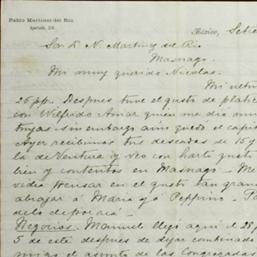 Pablo Martinez del Rio
Apartado, 28.
México, Setie
Sor. D. N. Martinez del Rio
Masnago.
Mi muy querido Nicolas.
Mi ultima
26 pp. Despues tuve el gusto de platic
con Wilfrido Amor quien me dió
tuyas sin embargo aun quedó el capit
Ayer recibimos tus deseadas de 15 y
la de Ventura y veo con harto gusto
bien y contentos en Masnago. Me
pensar en el gusto tan gran
abrazar á Maria y á Peppino.
Negocios. Manuel llegó aqui el 28 p
5 de este despues de dejar combinado
amigo el asunto de las Congregadas